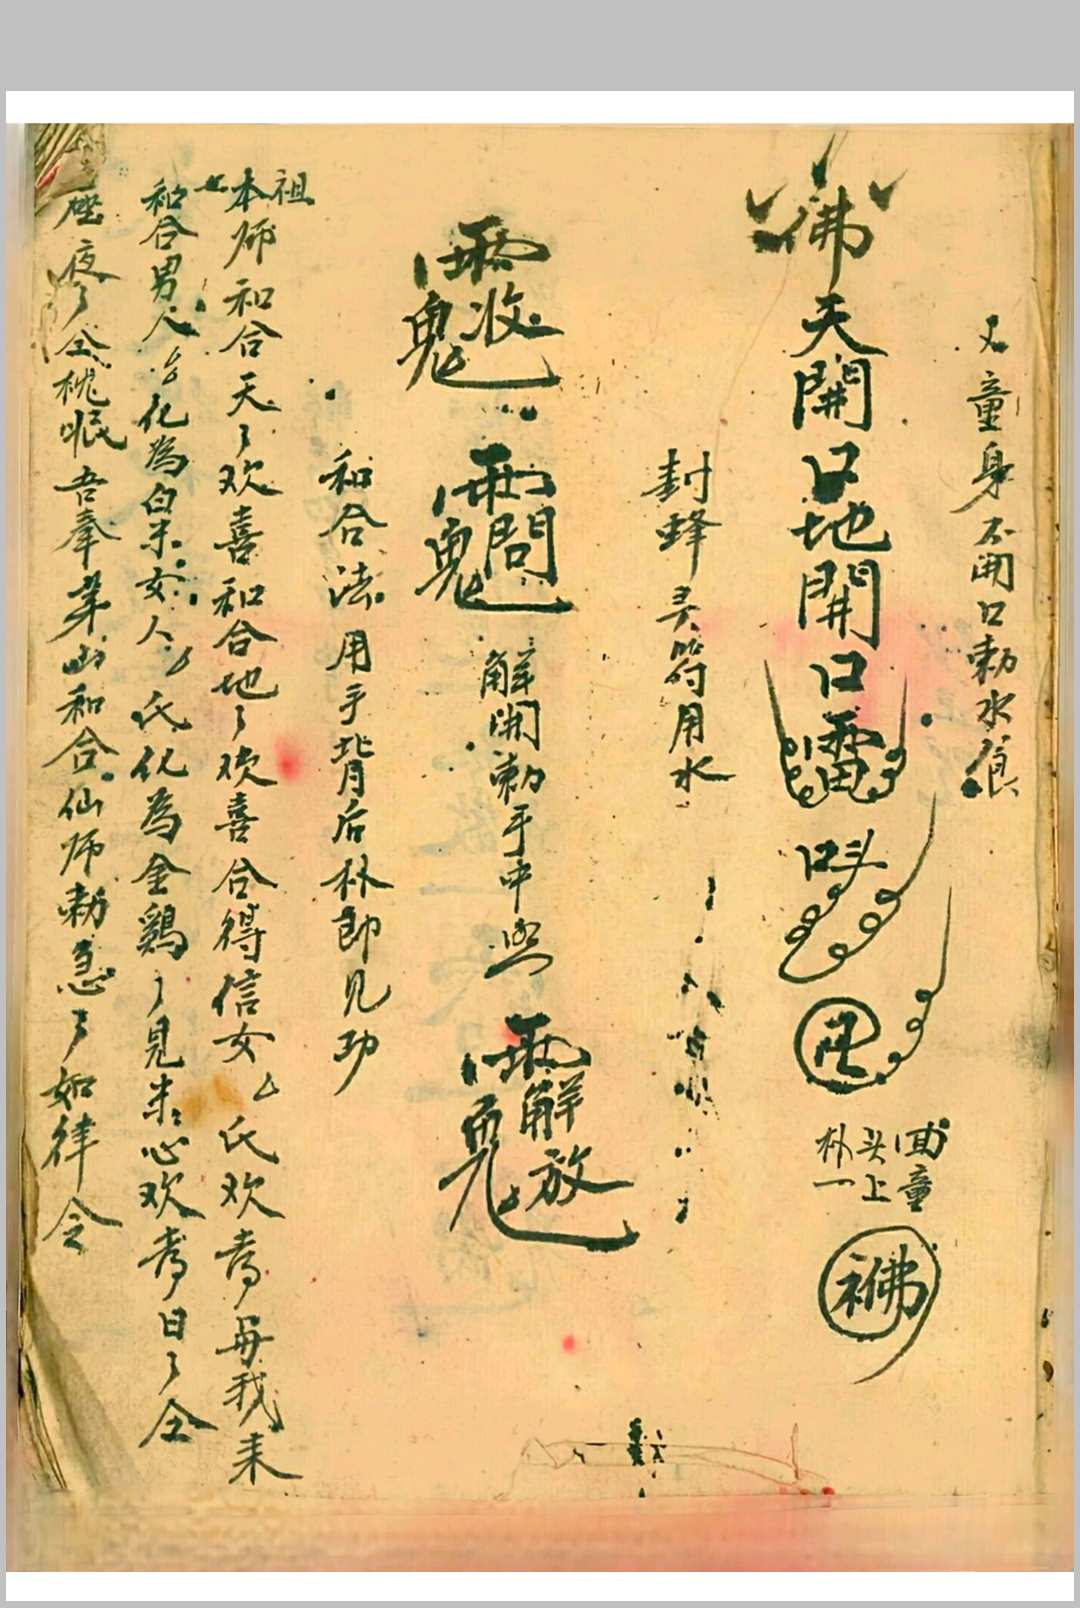 又童身不開口勅水食
佛天開口地開口雷
回童
头上
朴一
佛
封蜂灵符用水
收鬼
問鬼
解開勅手中
解放鬼
和合法用手背后林即見功
祖
本师和合天々欢喜和合地々欢喜合得信女厶氏欢喜与我来
和合男人厶化為白米女人厶氏化為金鷄々見米心欢喜日々仝
座夜々仝枕眠吾奉茅山和合仙师勅急々如律令